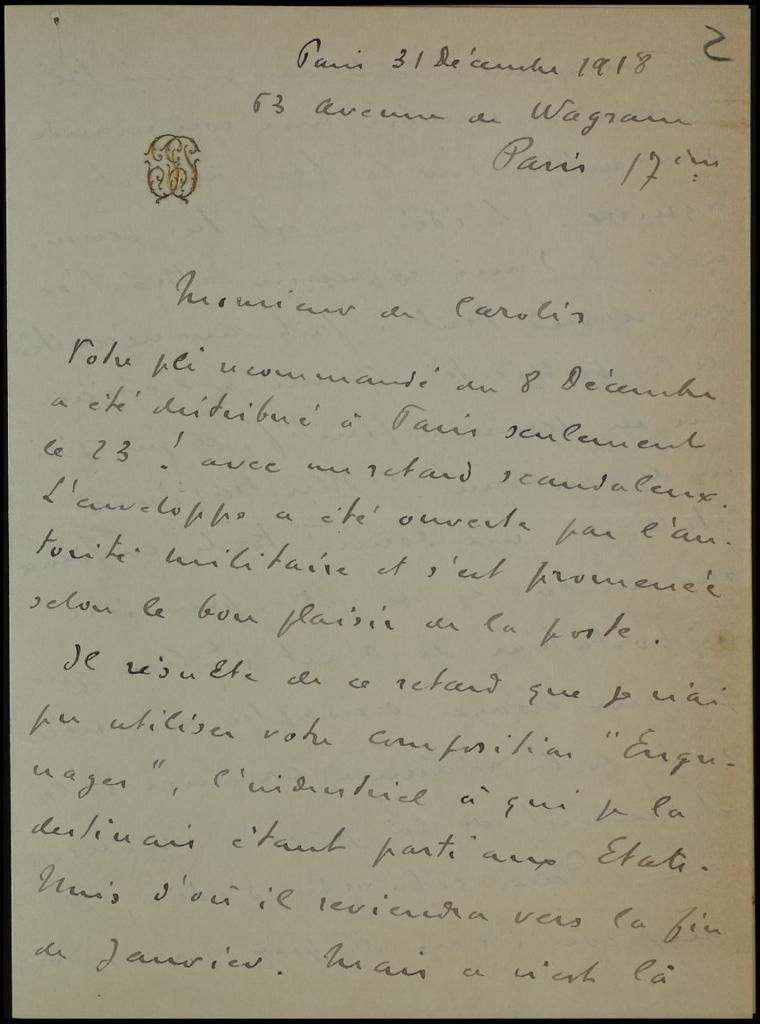 2
Paris 31 Décembre 1918
63 avenue de Wagram
Paris 17ème
Monsieur de Carolis
Votre pli recommandé du 8 Décembre
a été distribué à Paris seulement
le 23 ! avec un retard scandaleux.
L'enveloppe a été ouverte par l'au-
torité militaire et s'est promenée
selon le bon plaisir de la poste.
Il résulte de ce retard que je n'ai
pu utiliser votre composition "Engre-
nages", l'industriel à qui je la
destinais étant parti aux Etats-
Unis d'où il reviendra vers la fin
de Janvier. Mais ce n'est là